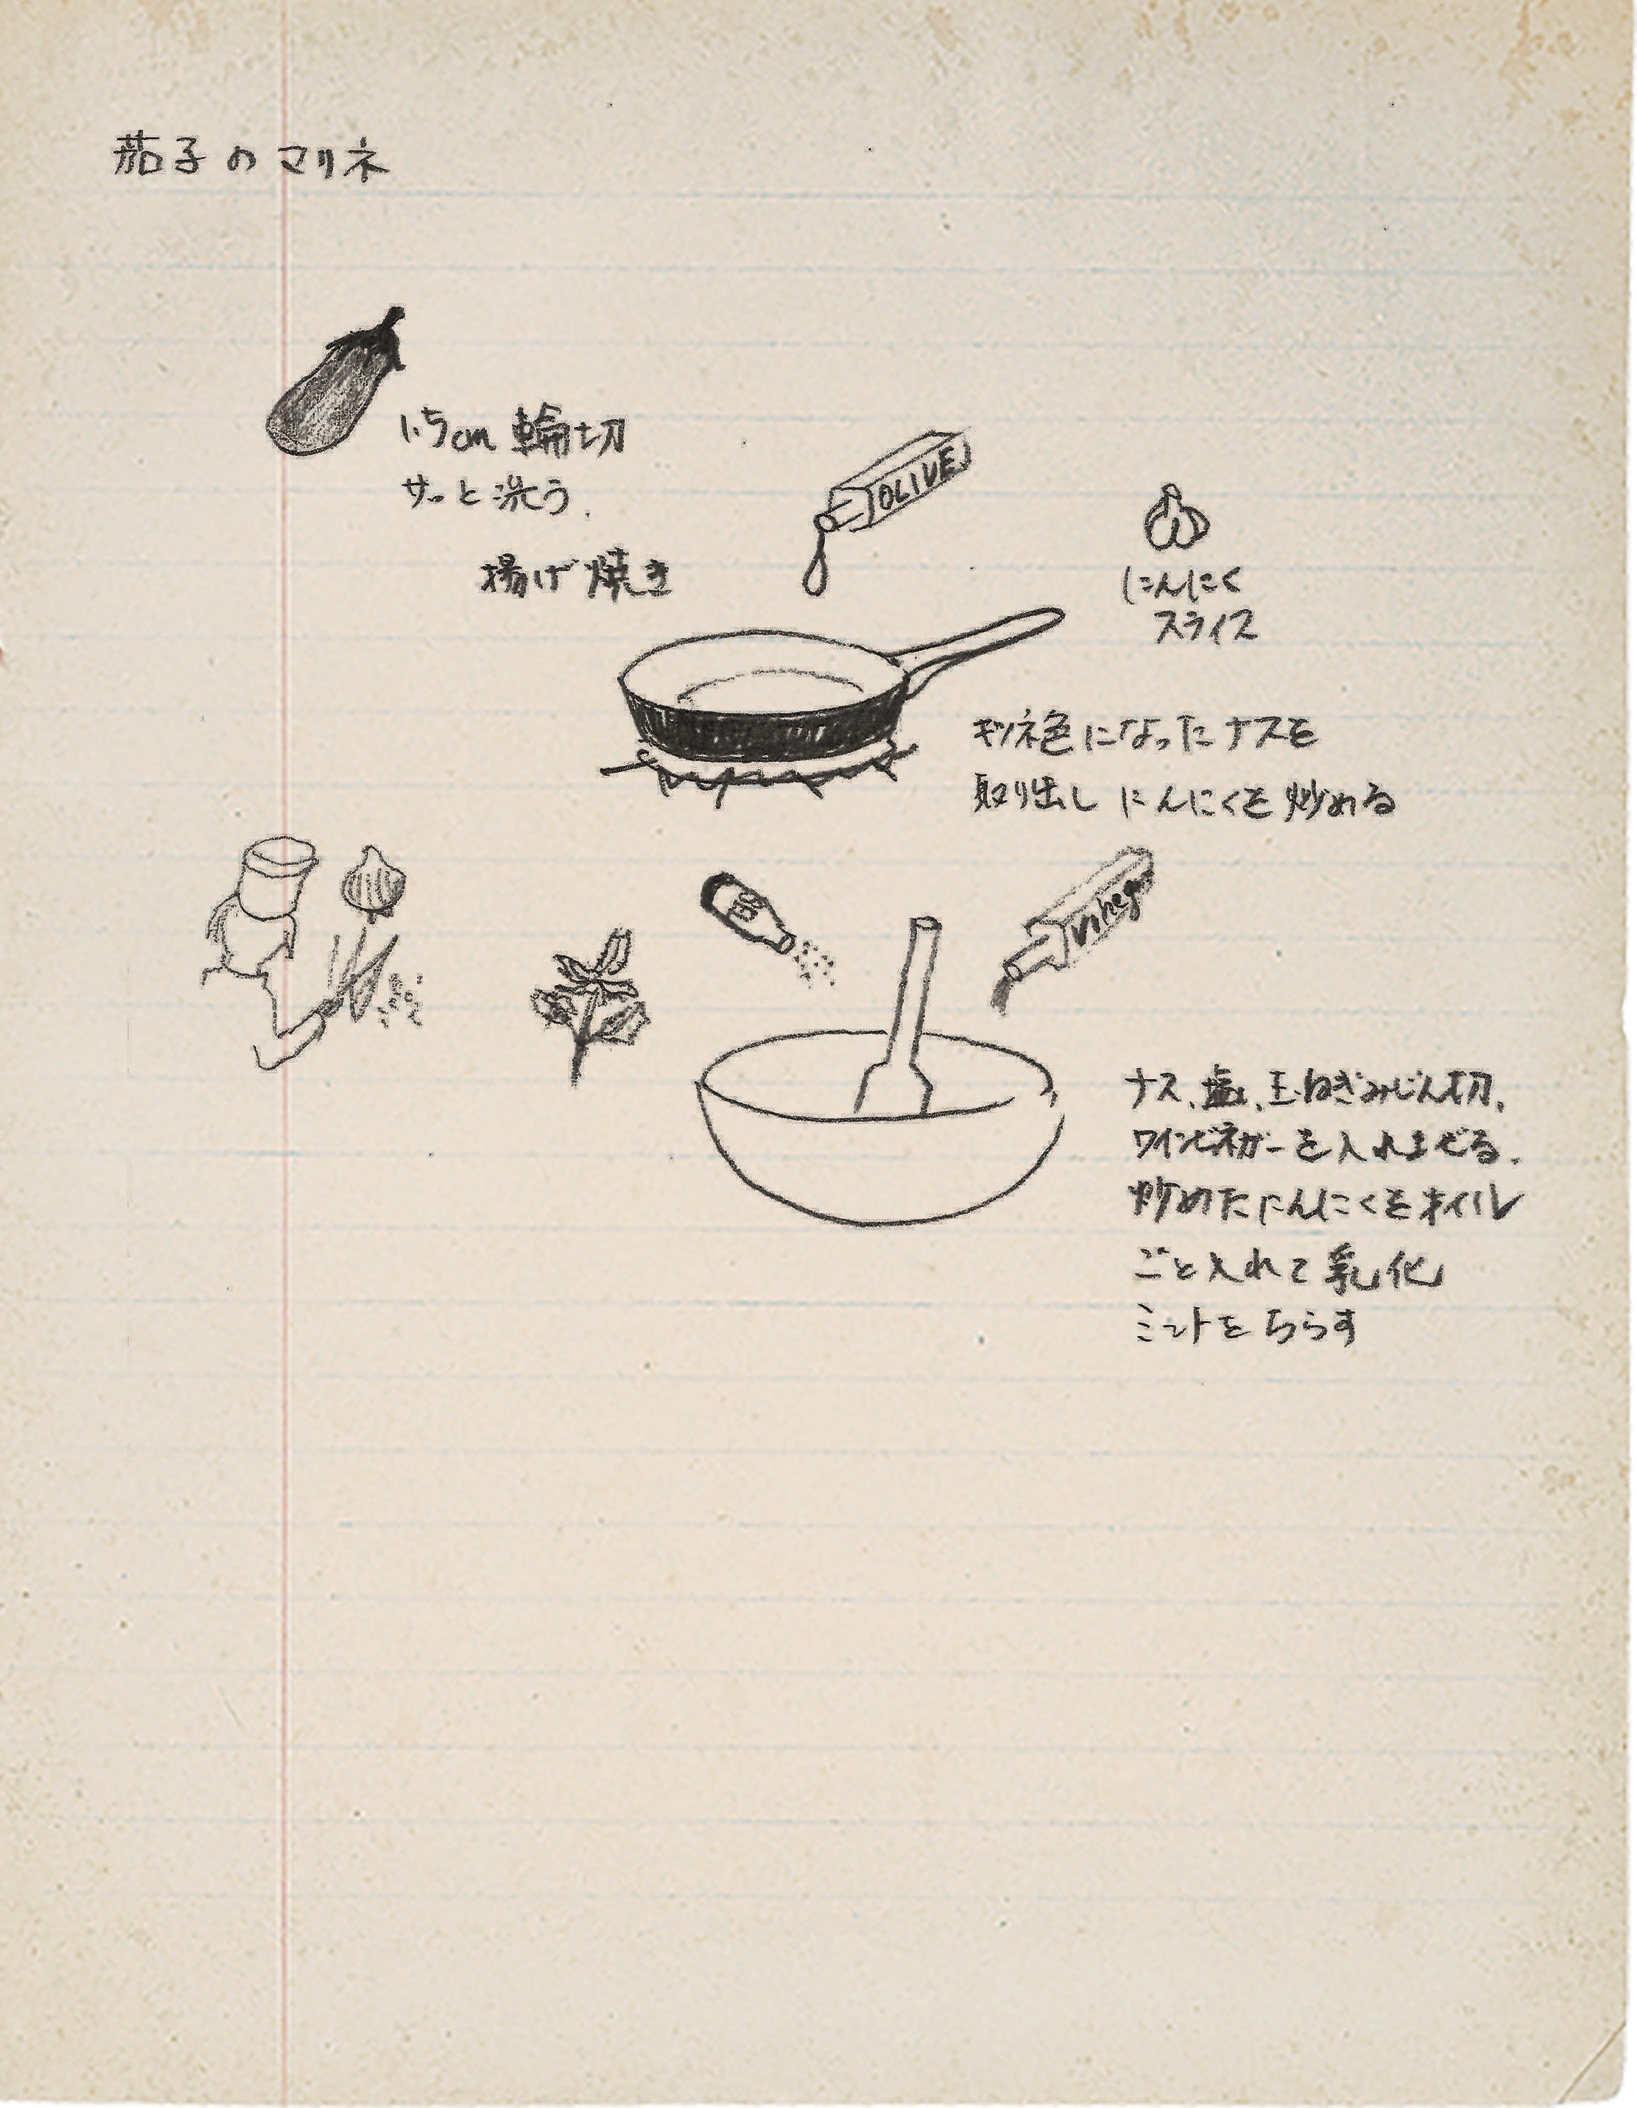 茄子のマリネ
1.5cm 輪切
サッと洗う.
揚げ焼き
OLIVE
にんにく
スライス
キツネ色になったナスを
取り出し にんにくを炒める
Vinegar
ナス、塩、玉ねぎみじん切、
ワインビネガーを入れまぜる.
炒めたにんにくをオイル
ごと入れて乳化
ミントをちらす